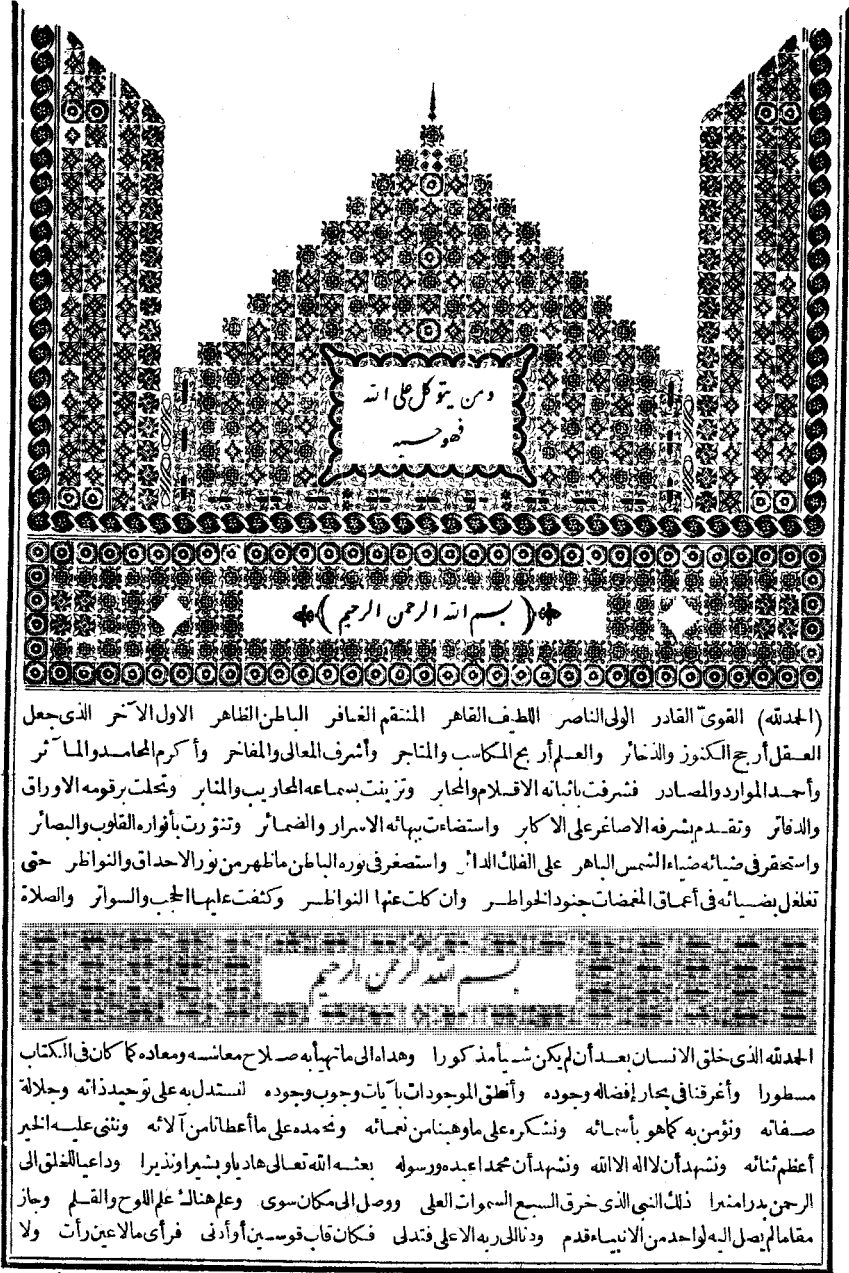 ومن يتوكل على الله
فهو حسبه
(بسم الله الرحمن الرحيم)
(الحمد لله) القوىّ القادر الولى الناصر اللطيف القاهر المنتقم الغافر الباطن الظاهر الاول الآخر الذى جعل
العقل أرجح الكنوز والذخائر والعلم أربح المكاسب والمتاجر وأشرف المعالى والمفاخر وأكرم المحامد والمآثر
وأحمد الموارد والمصادر فشرفت باثباته الاقلام والمحابر وتزينت بسماعه المحاريب والمنابر وتحلت برقومه الاوراق
والدفاتر وتقدم بشرفه الاصاغر على الاكابر واستضاءت ببهائه الاسرار والضمائر وتنوّرت بأنواره القلوب والبصائر
واستحقر فى ضيائه ضياء الشمس الباهر على الفلك الدائر واستصغر فى نوره الباطن ما ظهر من نور الاحداق والنواظر حتى
تغلغل بضيائه فى أعماق المغمضات جنود الخواطر وان كلت عنها النواظر وكثفت عليها الحجب والسواتر والصلاة
بسم الله الرحمن الرحيم
الحمد لله الذى خلق الانسان بعد أن لم يكن شيأ مذكورا وهداه الى ما تهيأ به صلاح معاشه ومعاده كما كان فى الكتاب
مسطورا وأغرقنا فى بحار إفضاله وجوده وأنطق الموجودات بآيات وجوب وجوده لنستدل به على توحيد ذاته وجلالة
صفاته ونؤمن به كما هو بأسمائه ونشكره على ما وهبنا من نعمائه ونحمده على ما أعطانا من آلائه ونثنى عليه الخير
أعظم ثنائه ونشهد أن لا اله الا الله ونشهد أن محمدا عبده ورسوله بعثه الله تعالى هاديا وبشيرا ونذيرا وداعيا للخلق الى
الرحمن بدرا منيرا ذلك النبى الذى خرق السبع السموات العلى ووصل الى مكان سوى وعلم هناك علم اللوح والقلم وجاز
مقاما لم يصل اليه لواحد من الانبياء قدم ودنا الى ربه الاعلى فتدلى فكان قاب قوسين أو أدنى فرأى ما لا عين رأت ولا